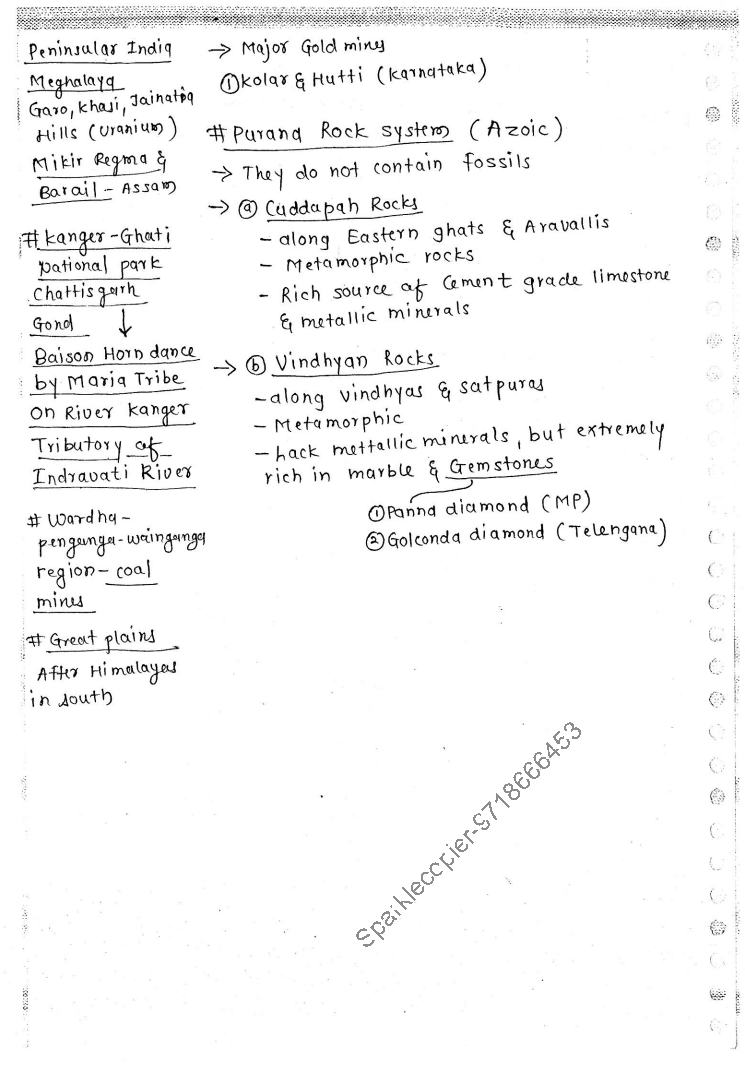 Peninsular India
Meghalaya
Garo, Khasi, Jainatia
Hills (Uranium)
Mikir Regma &
Barail - Assam
# Kanger-Ghati
National park
Chattisgarh
Gond ↓
Baison Horn dance
by Maria Tribe
on River Kanger
Tributory of
Indravati River
# Wardha -
penganga-wainganga
region - coal
mines
# Great plains
After Himalayas
in south
→ Major Gold mines
① Kolar & Hutti (Karnataka)
# Purana Rock system (Azoic)
→ They do not contain fossils
→ ⓐ Cuddapah Rocks
- along Eastern ghats & Aravallis
- Metamorphic rocks
- Rich source of Cement grade limestone
& metallic minerals
→ ⓑ Vindhyan Rocks
- along vindhyas & satpuras
- Metamorphic
- Lack mettallic minerals, but extremely
rich in marble & Gemstones
① Panna diamond (MP)
② Golconda diamond (Telengana)
Sparkleccpier-9718666453